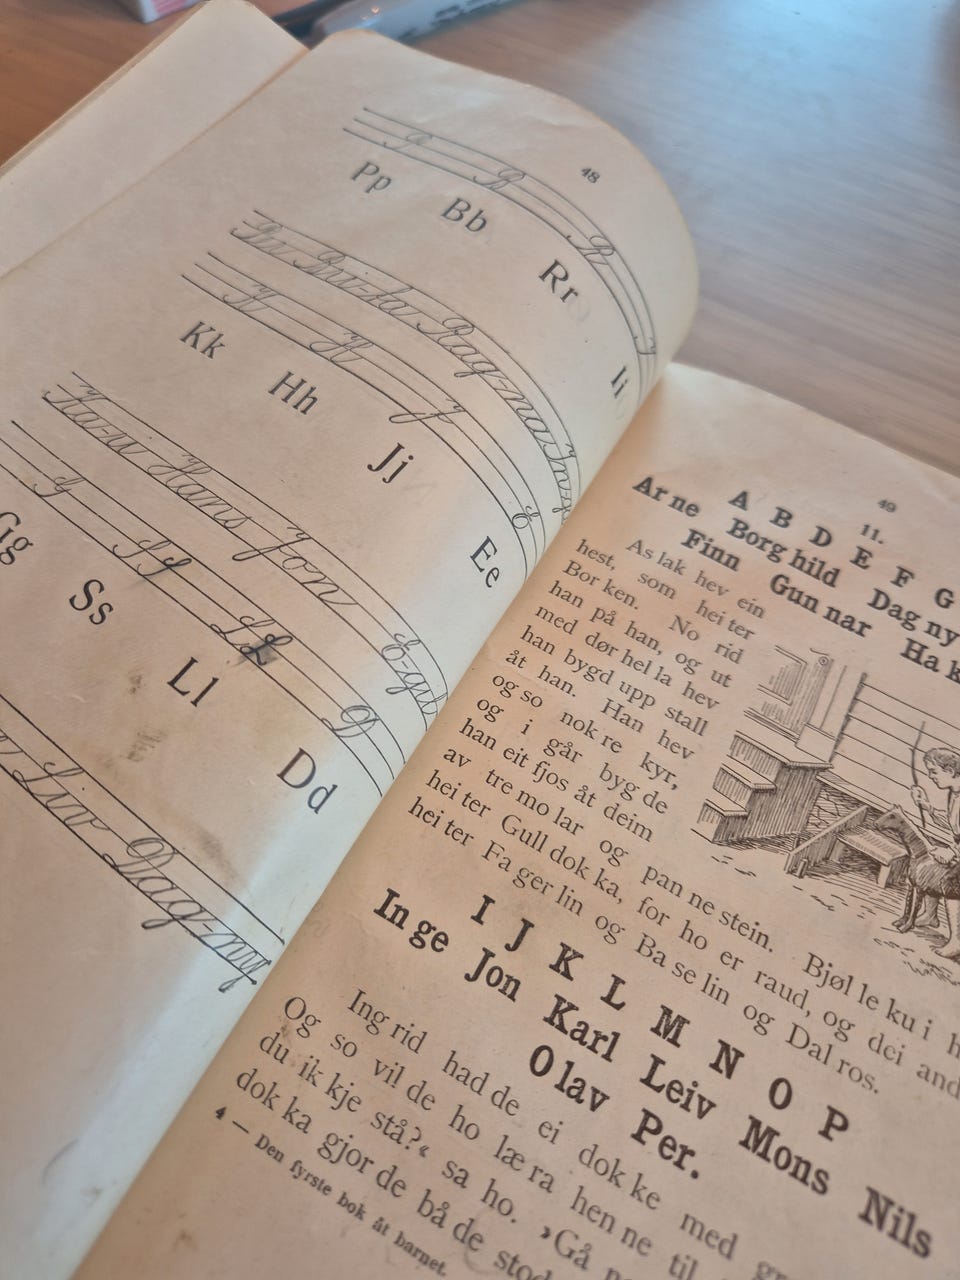 48
P B R I
Pp Bb Rr Ii
Bru-ta Rag-na In-
K H J E
Kk Hh Jj Ee
Hans Jon E-gil
G S L L D
Gg Ss Ll Dd
Liv Dag-ny
49
11.
A B D E F G
Ar ne Borg hild Dag ny
Finn Gun nar Ha k
As lak hev ein
hest, som hei ter
Bor ken. No rid
han på han, og ut
med dør hel la hev
han bygd upp stall
åt han. Han hev
og so nok re kyr,
og i går byg de
han eit fjos åt deim
av tre mo lar og pan ne stein. Bjøl le ku i h
hei ter Gull dok ka, for ho er raud, og dei and
hei ter Fa ger lin og Ba se lin og Dal ros.
I J K L M N O P
In ge Jon Karl Leiv Mons Nils
O lav Per.
Ing rid had de ei dok ke med
Og so vil de ho læ ra hen ne til
du ik kje stå?« sa ho. ›Gå
dok ka gjor de bå de stod
4 — Den fyrste bok åt barnet.